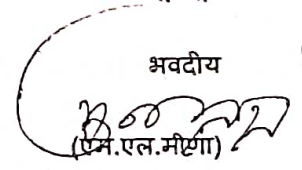 भवदीय
(एम.एल.मीणा)